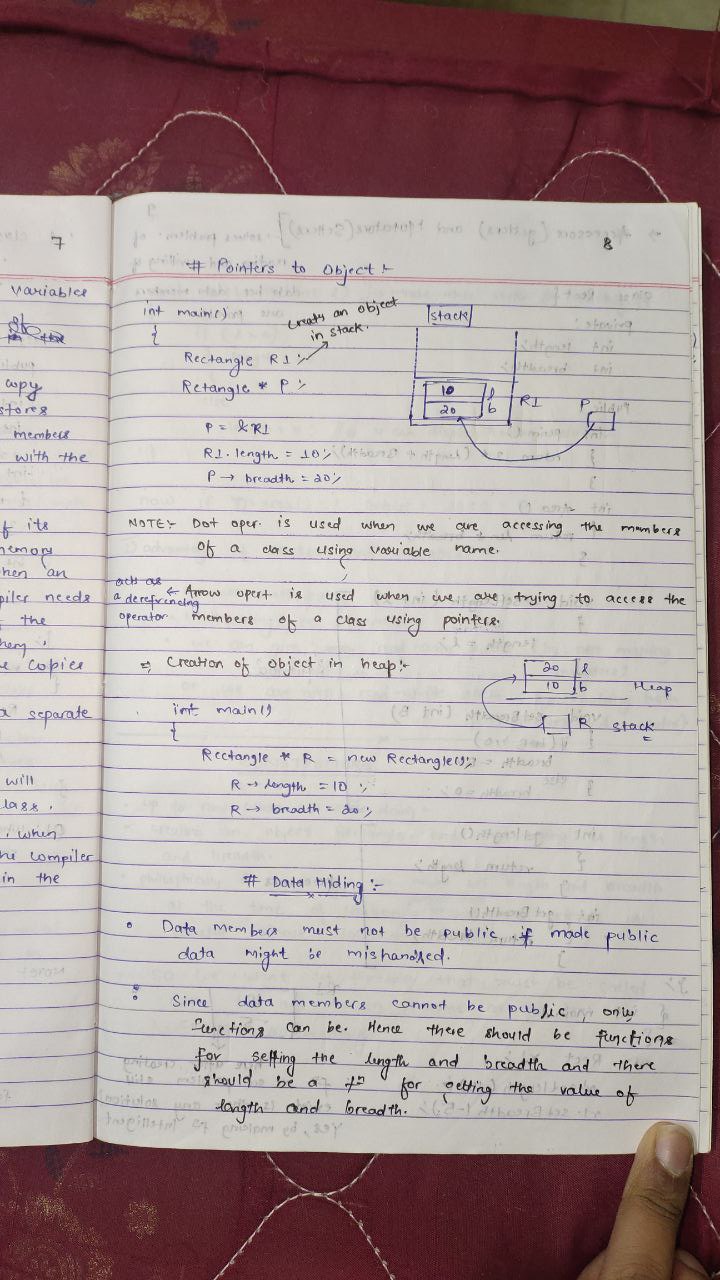 7
variables
copy
stores
members
with the
f its
memory
hen an
piler needs
the
hem.
e copies
a separate
will
lass.
when
he compiler
in the
8
# Pointers to Object :-
int main()
creats an object
in stack.
{
Rectangle R1;
Retangle * P;
P = &R1
R1. length = 10;
P → breadth = 20;
stack
10 l
20 b
R1
P
NOTE:- Dot oper. is used when we are accessing the members
of a class using variable name.
acts as
a derefrencing
operator
← Arrow opert is used when we are trying to access the
members of a class using pointers.
⇒ Creation of object in heap:-
20 l
10 b
Heap
R stack
int main()
{
Rectangle * R = new Rectangle();
R → length = 10;
R → breadth = 20;
# Data Hiding :-
• Data members must not be public if made public
data might be mishandled.
• Since data members cannot be public, only
functions can be. Hence there should be functions
for setting the length and breadth and there
should be a fn for getting the value of
length and breadth.